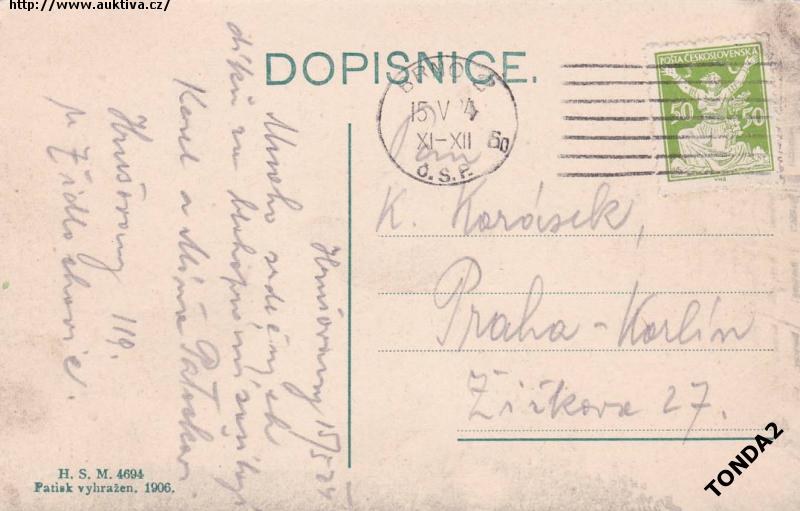 http://www.auktiva.cz/
DOPISNICE.
BRNO 2
15 V 24
XI-XII
Č.S.P.
POŠTA ČESKOSLOVENSKÁ
50 50
Pan
K. Karásek,
Praha-Karlín
Žižkova 27.
Hrušovany 15/5 24
Mnoho srdečných
díků za
Karel a
Hrušovany 119.
p. Židlochovic.
H. S. M. 4694
Patisk vyhražen. 1906.
TONDA2